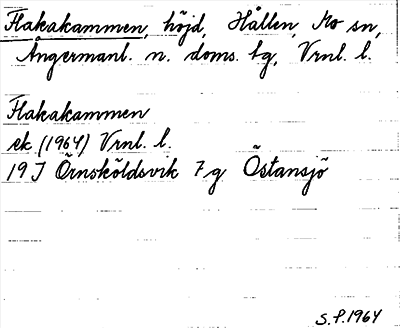 Flakakammen, höjd, Hållen, Mo sn,
Ångermanl. n. doms. tg, Vrnl. l.
Flakakammen
ek (1964) Vrnl. l.
19 J Örnsköldsvik 7 g Östansjö
S.P.1964